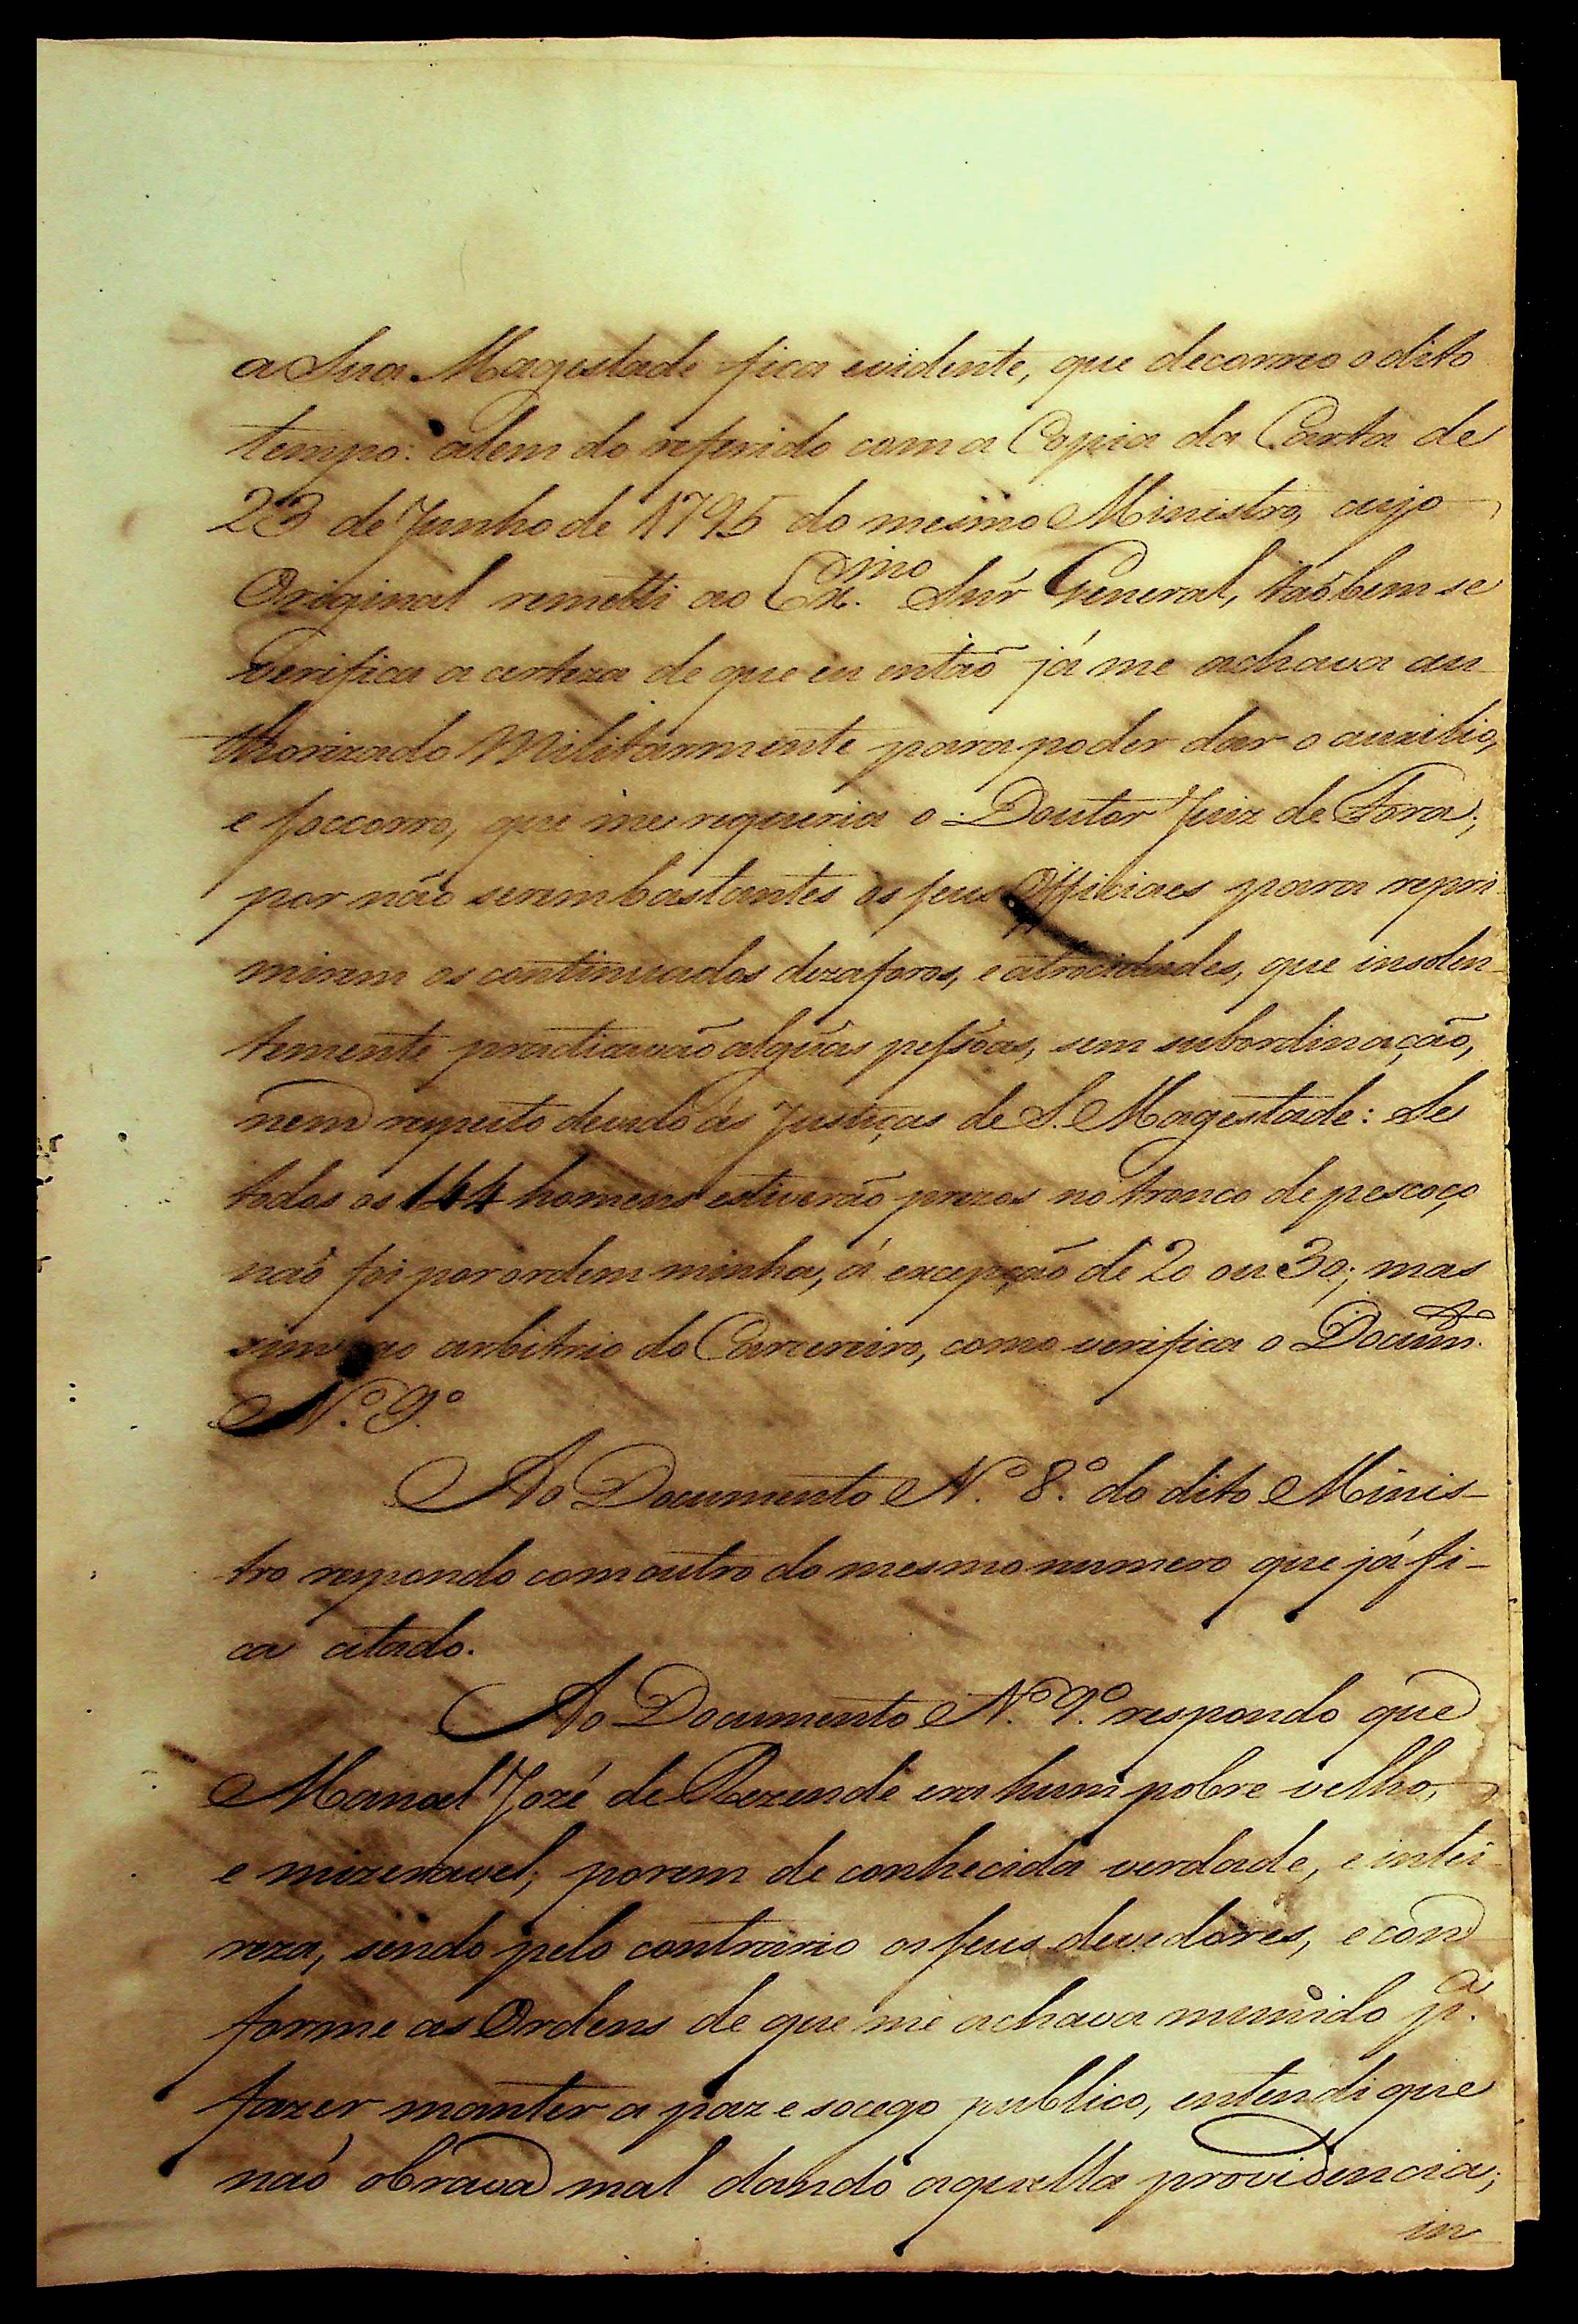 a Sua Magestade fica evidente, que decorreo o dito
tempo: alem do referido com a Copia da Carta de
23 de Junho de 1795 do mesmo Ministro, cujo
Original remetti ao Ex.mo Snr̃ General, taõbem se
verifica a certeza de que eu entaõ já me achava au-
thorizado Militarmente para poder dar o auxilio,
e soccorro, que me requeria o Doutor Juiz de Fora;
por não serem bastantes os seus Officiaes para repri-
mirem os continuados dezaforos, e atrocidades, que insolen-
temente practicavão algũas pessôas, sem subordinação,
nem respeito devido ás Justiças de S. Magestade: Se
todos os 144 homens estiverão prezos no tronco de pescoço
naõ foi por ordem minha, á excepção de 20 ou 30; mas
sim ao arbitrio do Carcereiro, como verifica o Docum.to
N.º 9.º
Ao Documento N.º 8.º do dito Minis-
tro respondo com outro do mesmo numero que já fi-
ca citado.
Ao Documento N.º 9.º respondo que
Manoel Jozé de Rezende era hum pobre velho,
e mizeravel; porem de conhecida verdade, e intei-
reza, sendo pelo contrario os seus devedores, e con
forme as Ordens de que me achava munido p.ª
fazer manter a paz e socego publico, entendi que
naõ obrava mal dando aquella providencia;
in-